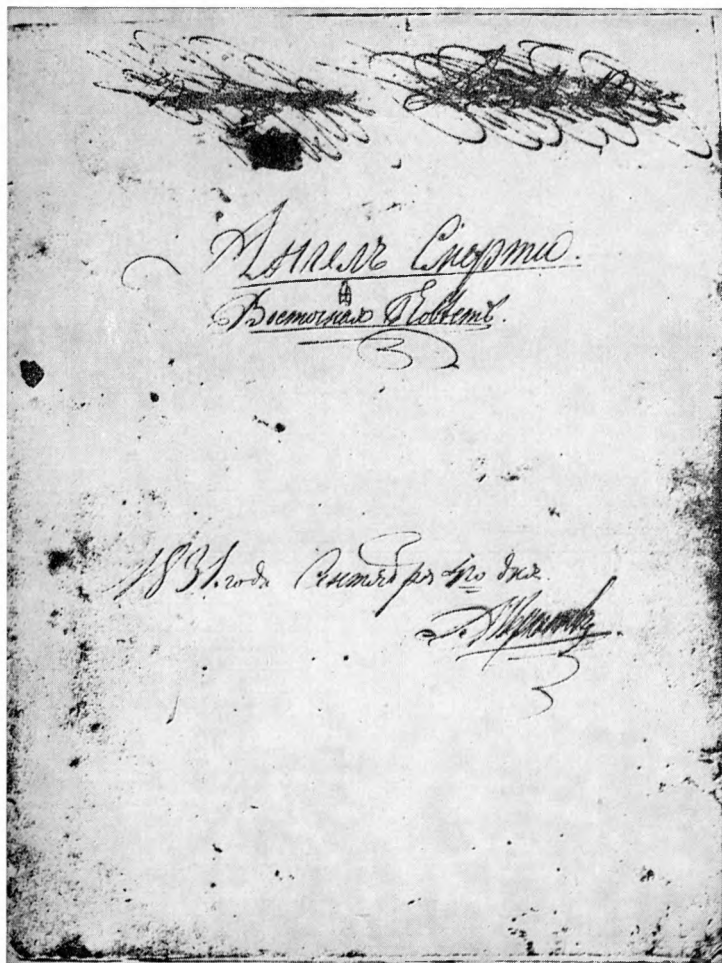 Ангелъ Смерти.
Восточная Повѣсть.
1831. года Сентября 4го дня.
М. Лермонтовъ.